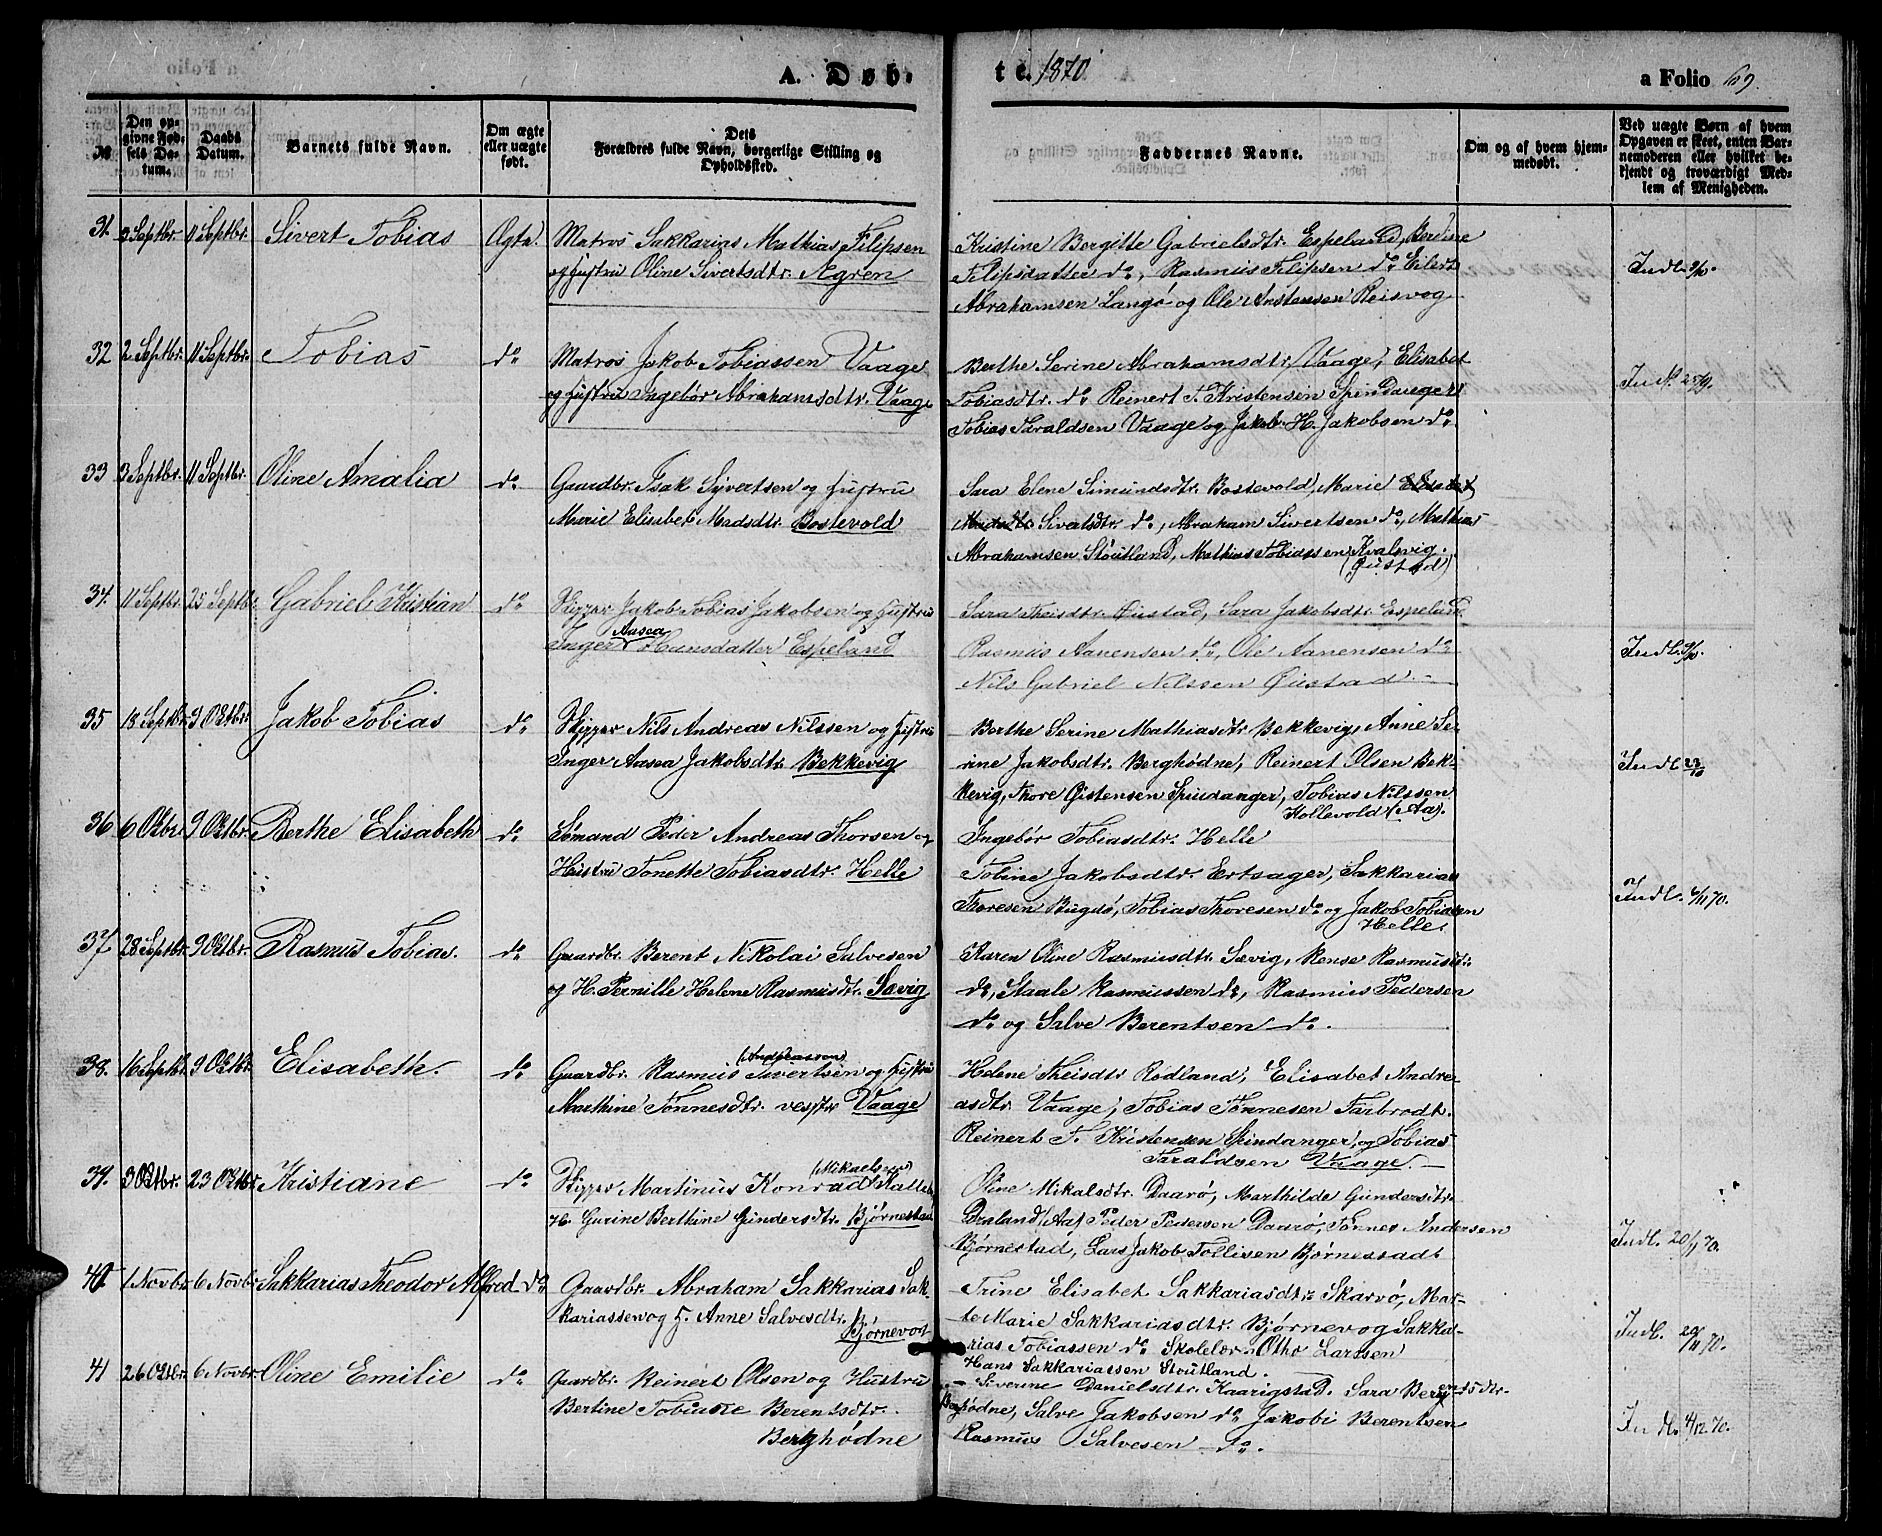 A. Døb-
te. 1870
a Folio 69.
No
Den op-
givne Fød-
sels Da-
tum.
Daabs
Datum.
Barnets fulde Navn.
Om ægte
eller uægte
født.
Dets
Forældres fulde Navn, borgerlige Stilling og
Opholdssted.
Faddernes Navne.
Om og af hvem hjem-
medøbt.
Ved uægte Børn af hvem
Opgaven er skeet, enten Bar-
nemoderen eller hvilket be-
kjendt og troværdigt Med-
lem af Menigheden.
31. 3 Septbr. 11 Septbr. Sivert Tobias Ægte. Matros Sakkarias Mathias Filipsen
og Hustru Oline Sivertsdtr.Ægren
Kristine Bergitte Gabrielsdtr. Espeland, Berdine
Filipsdatter do, Rasmus Filipsen do, Eilert
Abrahamsen Langø og Ole Anstensen Reisvog
Indl. 9/10.
32 2 Septbr. 11 Septbr. Tobias do Matros Jakob Tobiassen Vaage
og Hustru Ingebør Abrahamsdtr. Vaage
Berthe Serine Abrahamsdtr. Vaage, Elisabet
Tobiasdtr. do, Reinert T. Kristensen Spindanger
Tobias Taraldsen Vaage og Jakob H. Jakobsen do
Indl. 25/9.
33 3 Septbr. 11 Septbr. Oline Amalia do Gaardbr. Isak Syvertsen og Hustru
Marie Elisabet Madsdtr. Bostevold
Sara Elene Simundsdtr. Bostevold, Marie Elisabet
Madsdtr. Sivalsdtr. do, Abraham Sivertsen do, Mathias
Abrahamsen Stoutland, Mathias Tobiassen Kvalsvig.
(Gustad)
34. 11 Septbr. 25 Septbr. Gabriel Kristian do Skipper Jakob Tobias Jakobsen og Hustru
Inger Aasea Hansdatter Espeland
Sara Theisdtr. Øustad, Sara Jakobsdtr. Espeland
Rasmus Aanensen do, Ole Aanensen do
Nils Gabriel Nilssen Øustad.
Indl. 9/10.
35 18 Septbr. 9 Oktbr. Jakob Tobias do Skipper Nils Andreas Nilssen og Hustru
Inger Aasea Jakobsdtr. Bekkevig
Berthe Serine Mathiasdtr. Bekkevig, Anne Se-
rine Jakobsdtr. Berghødne, Reinert Olsen Bek-
kevig, Thore Gistensen Spindanger, Tobias Nilssen
Hollevold (Aa).
Indl. 23/10
36 6 Oktbr. 9 Oktbr. Berthe Elisabeth do Sømand Peder Andreas Thorsen og
Hustru Tonette Tobiasdtr. Helle
Ingebør Tobiasdtr. Helle
Tobine Jakobsdtr. Ertsager, Sakkarias
Thoresen Bugdø, Tobias Thoresen do og Jakob Tobiasen
Helle.
Indl. 6/11 70.
37 28 Septbr. 9 Oktbr. Rasmus Tobias. do Gaardbr. Berent Nikolai Salvesen
og H. Pernille Helene Rasmusdtr. Sævig
Karen Oline Rasmusdtr. Sævig, Rense Rasmusdtr.
do, Staale Rasmussen do, Rasmus Pedersen
do og Salve Berentsen do.
38. 16 Septbr. 9 Oktbr. Elisabeth. do Gaardbr. Rasmus (Andreassen) Sivertsen og Hustru
Marthine Tønnesdtr. vestre Vaage
Helene Theisdtr. Rødland, Elisabet Andre-
asdtr. Vaage, Tobias Tønnesen Farbrodt.
Reinert T. Kristensen Spindanger, og Tobias
Taraldsen Vaage.
39. 3 Oktbr. 23 Oktbr. Kristiane do Skipper Martinus Konrad (Mikaelsen)
H. Gurine Berthine Gundersdtr. Bjørnestad
Oline Mikalsdtr. Daarø, Marthilde Gundersdtr.
Draland (Aa) Peder Pedersen Daarø, Tønnes Andersen
Bjørnestad, Lars Jakob Tollisen Bjørnestad
Indl. 20/11 70.
40 1 Novbr. 6 Novbr. Sakkarias Theodor Alfred do Gaardbr. Abraham Sakkarias Sak-
kariassen og H. Anne Salvesdtr.
Bjørnevog
Trine Elisabet Sakkariasdtr. Skarvø, Mar-
te Marie Sakkariasdtr. Bjørnevog Sakka-
rias Tobiassen do Skolelær. Otho Larssen
Hans Sakkariassen Stoutland.
Indl. 20/11 70.
41 26 Oktbr. 6 Novbr. Oline Emilie do Gaardbr. Reinert Olsen og Hustru
Bertine Tobiane Berentsdtr.
Berghødne
Siverine Danielsdtr. Kaarigstad. Sara Berentsdtr.
Berghødne, Salve Jakobsen do, Jakob Berentsen
Rasmus Salvesen do.
Indl. 4/12 70.